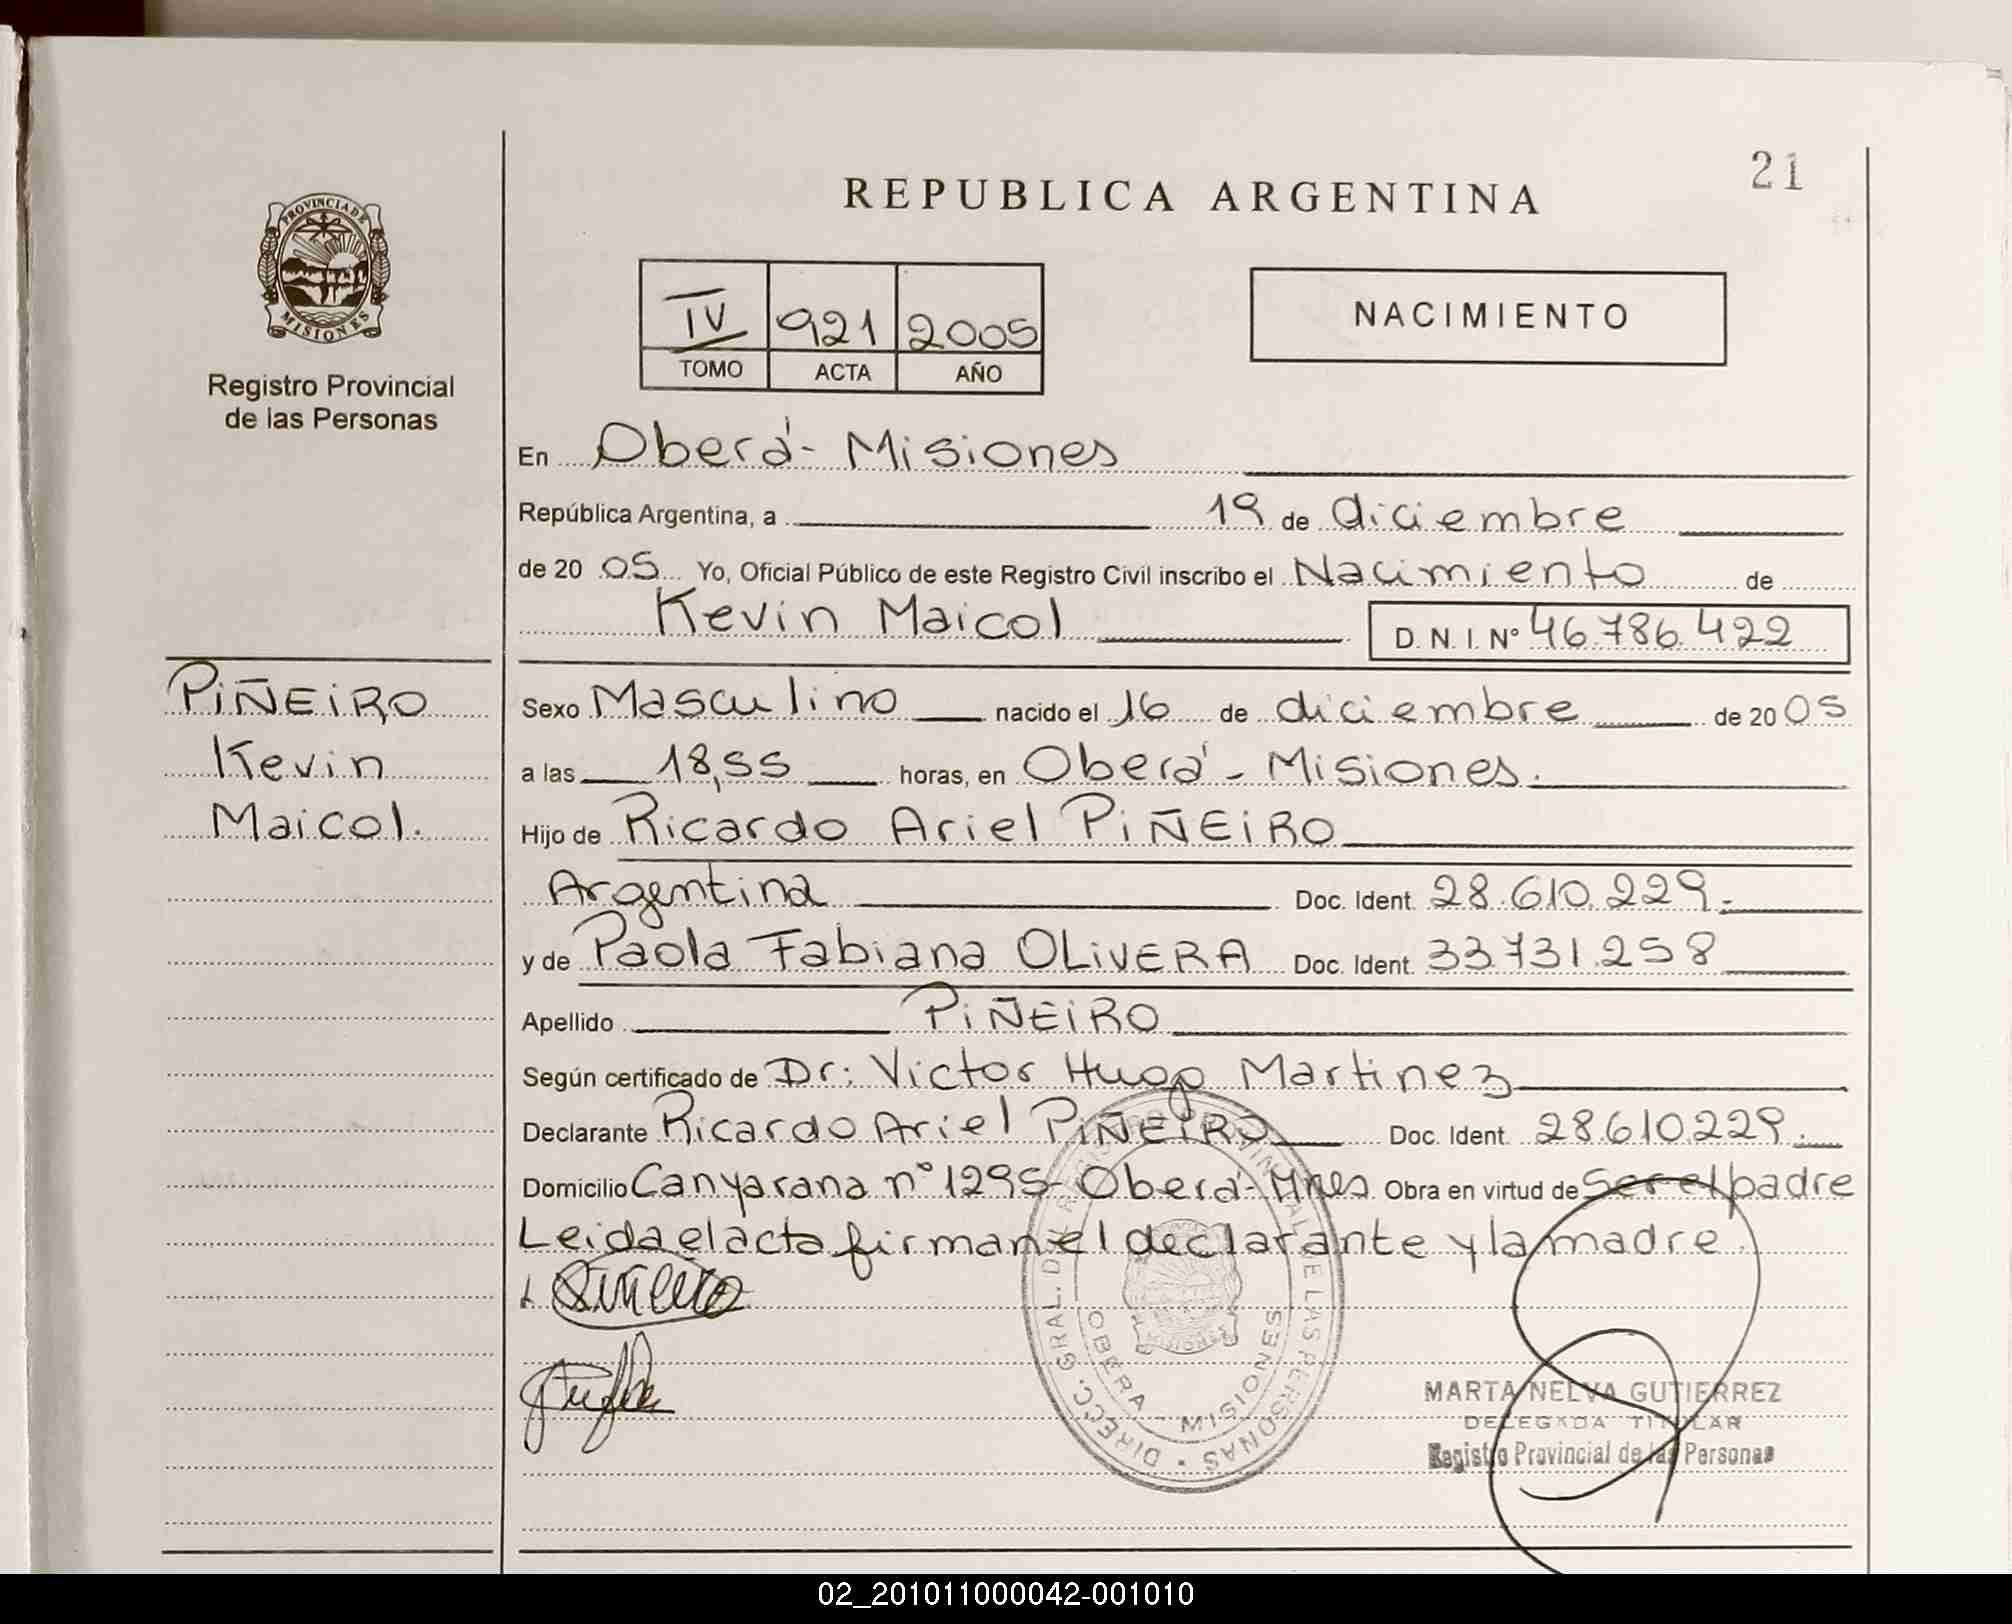 21
REPUBLICA ARGENTINA
PROVINCIA DE
MISIONES
Registro Provincial
de las Personas
IV 921 2005
TOMO ACTA AÑO
NACIMIENTO
En Oberá - Misiones
República Argentina, a 19 de diciembre
de 20 05 Yo, Oficial Público de este Registro Civil inscribo el Nacimiento de
Kevin Maicol D. N. I. Nº 46.786.422
PIÑEIRO
Kevin
Maicol.
Sexo Masculino nacido el 16 de diciembre de 20 05
a las 18,55 horas, en Oberá - Misiones.
Hijo de Ricardo Ariel PIÑEIRO
Argentina Doc. Ident. 28.610.229.-
y de Paola Fabiana OLIVERA Doc. Ident. 33.731.258
Apellido PIÑEIRO
Según certificado de Dr: Victor Hugo Martinez
Declarante Ricardo Ariel PIÑEIRO Doc. Ident. 28.610.229.
Domicilio Canyarana nº 1295- Oberá- Mnes Obra en virtud de Ser el padre
Leida el acta firman el declarante y la madre.
DIRECC. GRAL. DE REGISTRO PROVINCIAL DE LAS PERSONAS
OBERA - MISIONES
MARTA NELVA GUTIERREZ
DELEGADA TITULAR
Registro Provincial de las Personas
02_201011000042-001010